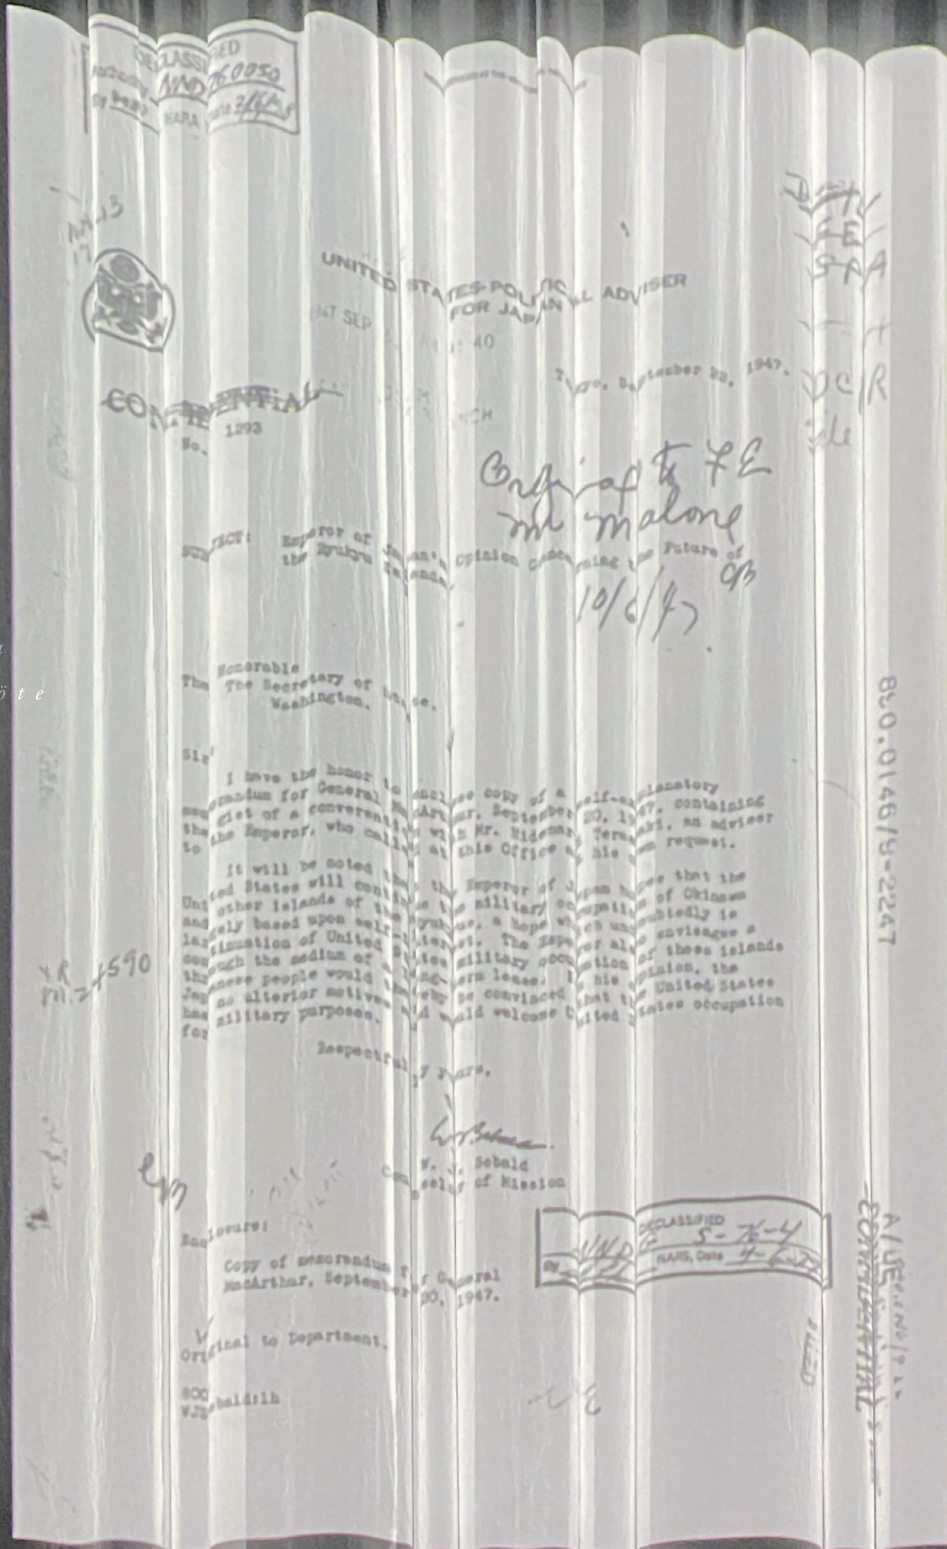 DECLASSIFIED
Authority NND 760050
NARA
UNITED STATES POLITICAL ADVISER
FOR JAPAN
SEP
40
Tokyo, September 22, 1947.
CONFIDENTIAL
No. 1293
FE
DC/R
Mr Malone
SUBJECT: Emperor of Japan's Opinion Concerning the Future of
the Ryukyu Islands.
10/6/47
The Honorable
The Secretary of State,
Washington.
Sir:
I have the honor to enclose copy of a self-explanatory
memorandum for General MacArthur, September 20, 1947, containing
the gist of a conversation with Mr. Hidenari Terasaki, an adviser
to the Emperor, who called at this Office at his own request.
It will be noted that the Emperor of Japan hopes that the
United States will continue the military occupation of Okinawa
and other islands of the Ryukyus, a hope which undoubtedly is
largely based upon self-interest. The Emperor also envisages a
continuation of United States military occupation of these islands
through the medium of a long-term lease. In his opinion, the
Japanese people would thereby be convinced that the United States
has no ulterior motives and would welcome United States occupation
for military purposes.
Respectfully yours,
W. J. Sebald
Counselor of Mission
Enclosure:
Copy of memorandum for General
MacArthur, September 20, 1947.
Original to Department.
800
WJSebald:lh
DECLASSIFIED
NARS, Date
890.0146/9-2247
CONFIDENTIAL